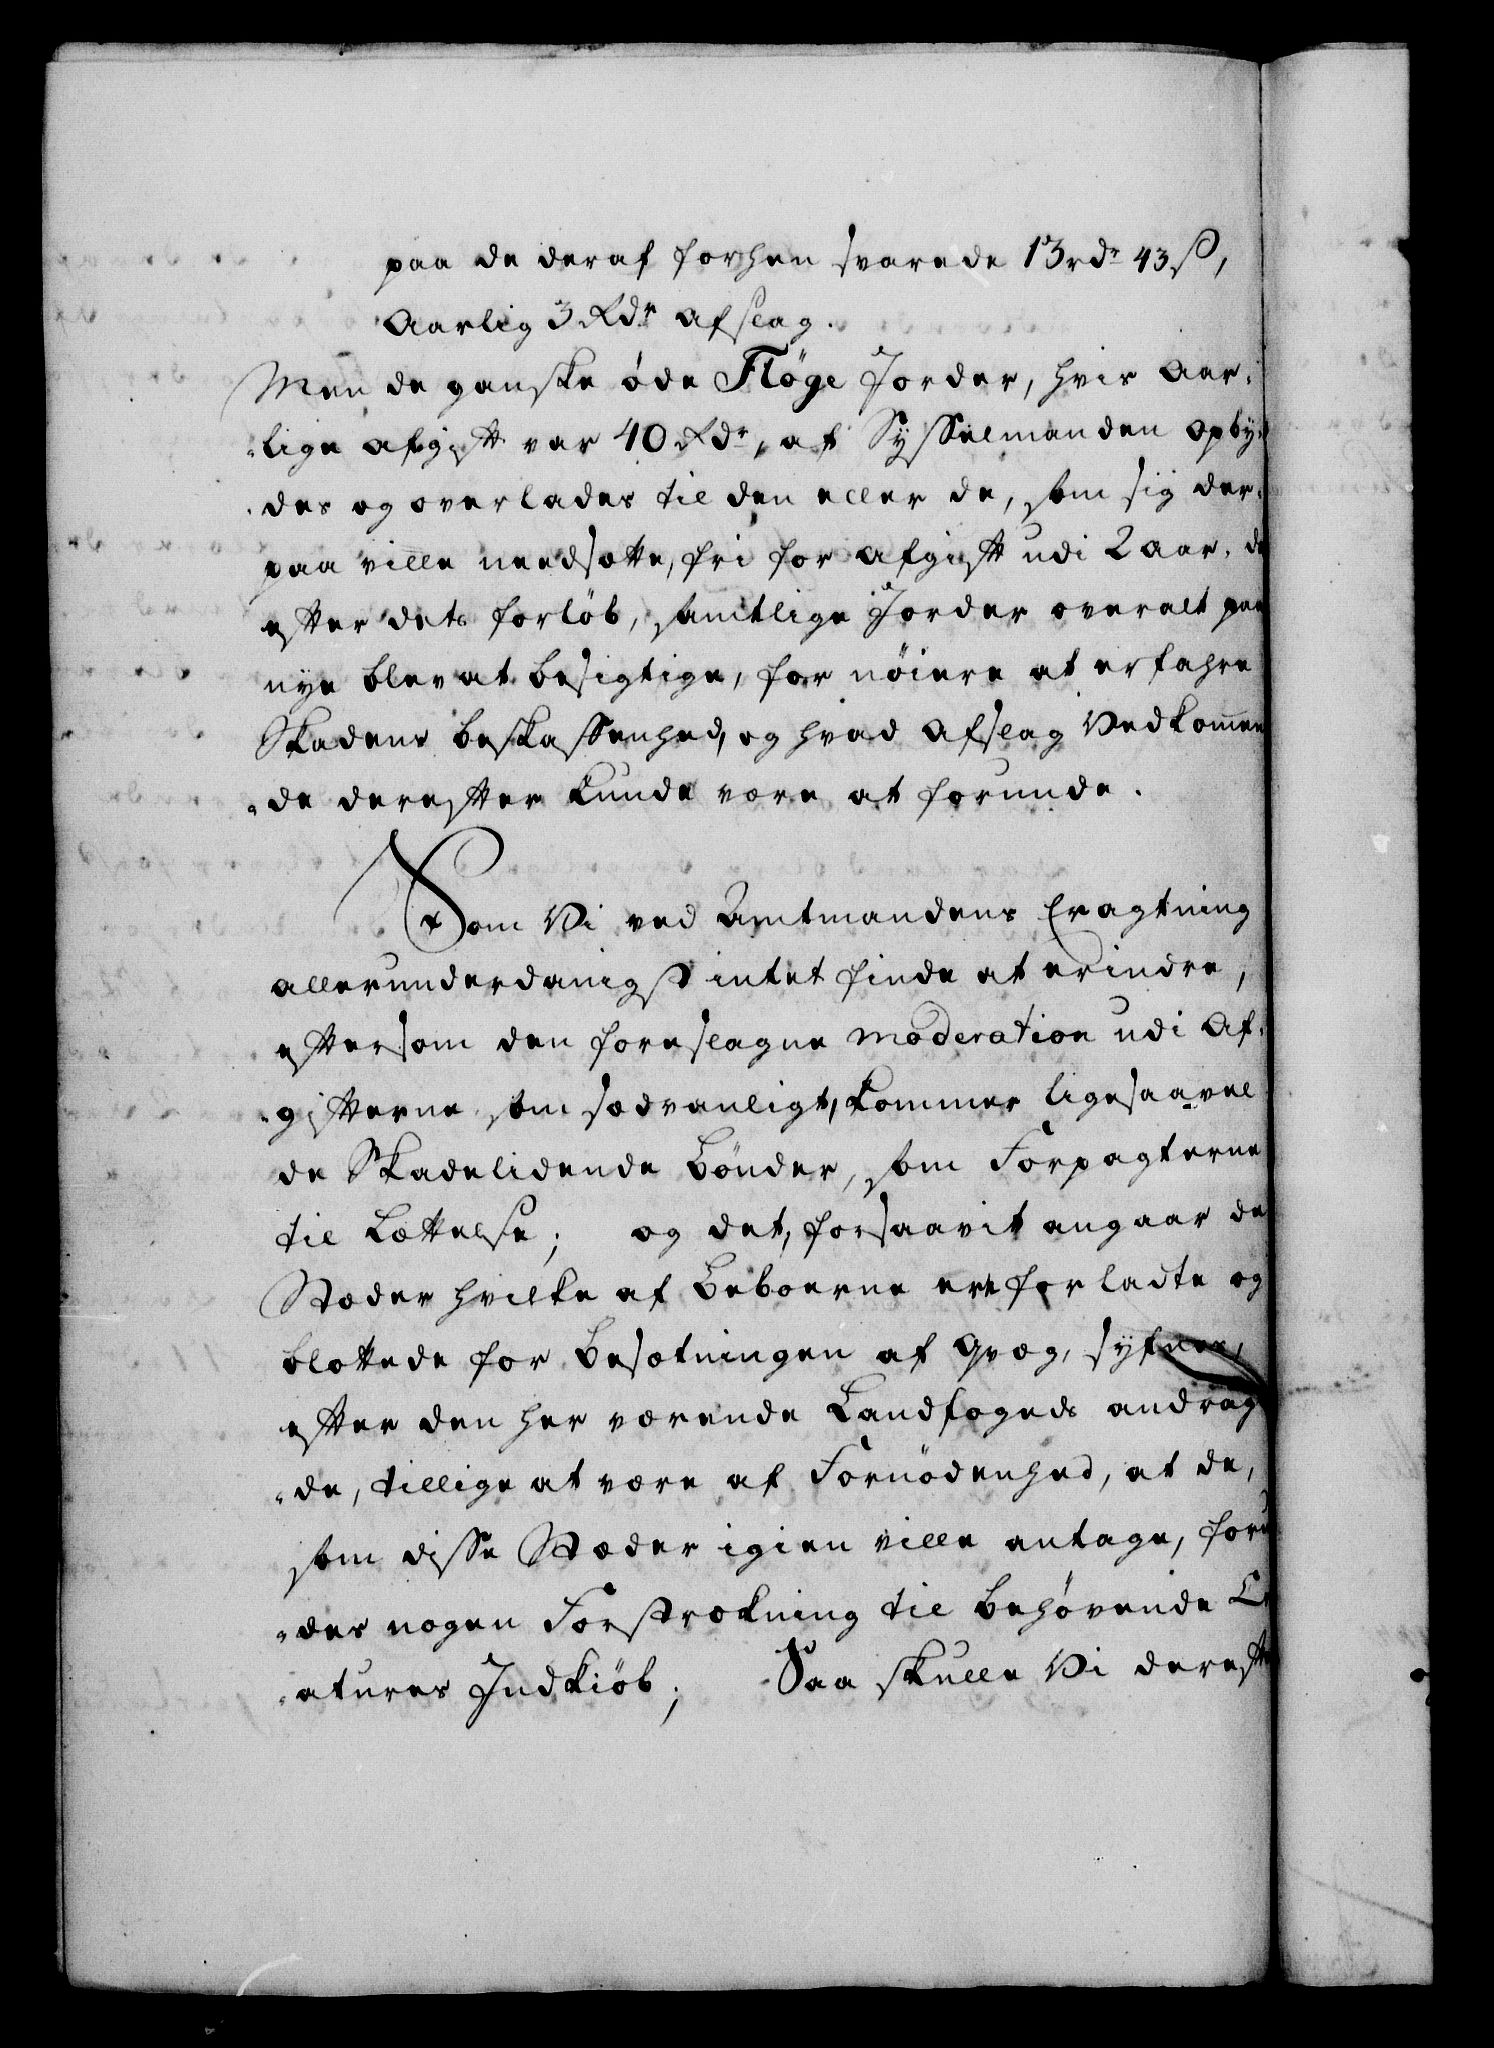 paa de deraf forhen svarede 13rdr 43ß,
Aarlig 3 Rdr Afslag.
Men de ganske øde Fløge Jorder, hvis Aar-
-lige Afgift var 40 Rdr, at Sysselmanden opby-
-des og overlades til den eller de, som sig der-
paa ville needsætte, fri for Afgift udi 2 Aar, da
efter dets forløb, samtlige Jorder overalt paa
nye blev at besigtige, for nøiere at erfahre
Skadens beskaffenhed, og hvad Afslag Vedkommen
-de derefter kunde være at forunde.
Som Vi ved Amtmandens Eragtning
allerunderdanigst intet finde at erindre,
eftersom den foreslagne Moderation udi Af-
-gifterne som sædvanligt, kommer ligesaavel
de Skadelidende Bønder, som Forpagterne
til Lættelse; og det, forsaavit angaar de
Stæder hvilke af Beboerne ere forladte og
blottede for Besætningen af Qvæg, synes,
efter den her værende Landfogeds andrag
-de, tillige at være af Fornødenhed, at de,
som disse Stæder igien ville antage, forun
-des nogen Forstrækning til behøvende Cre
-atures Indkiøb; Saa skulle Vi dereft